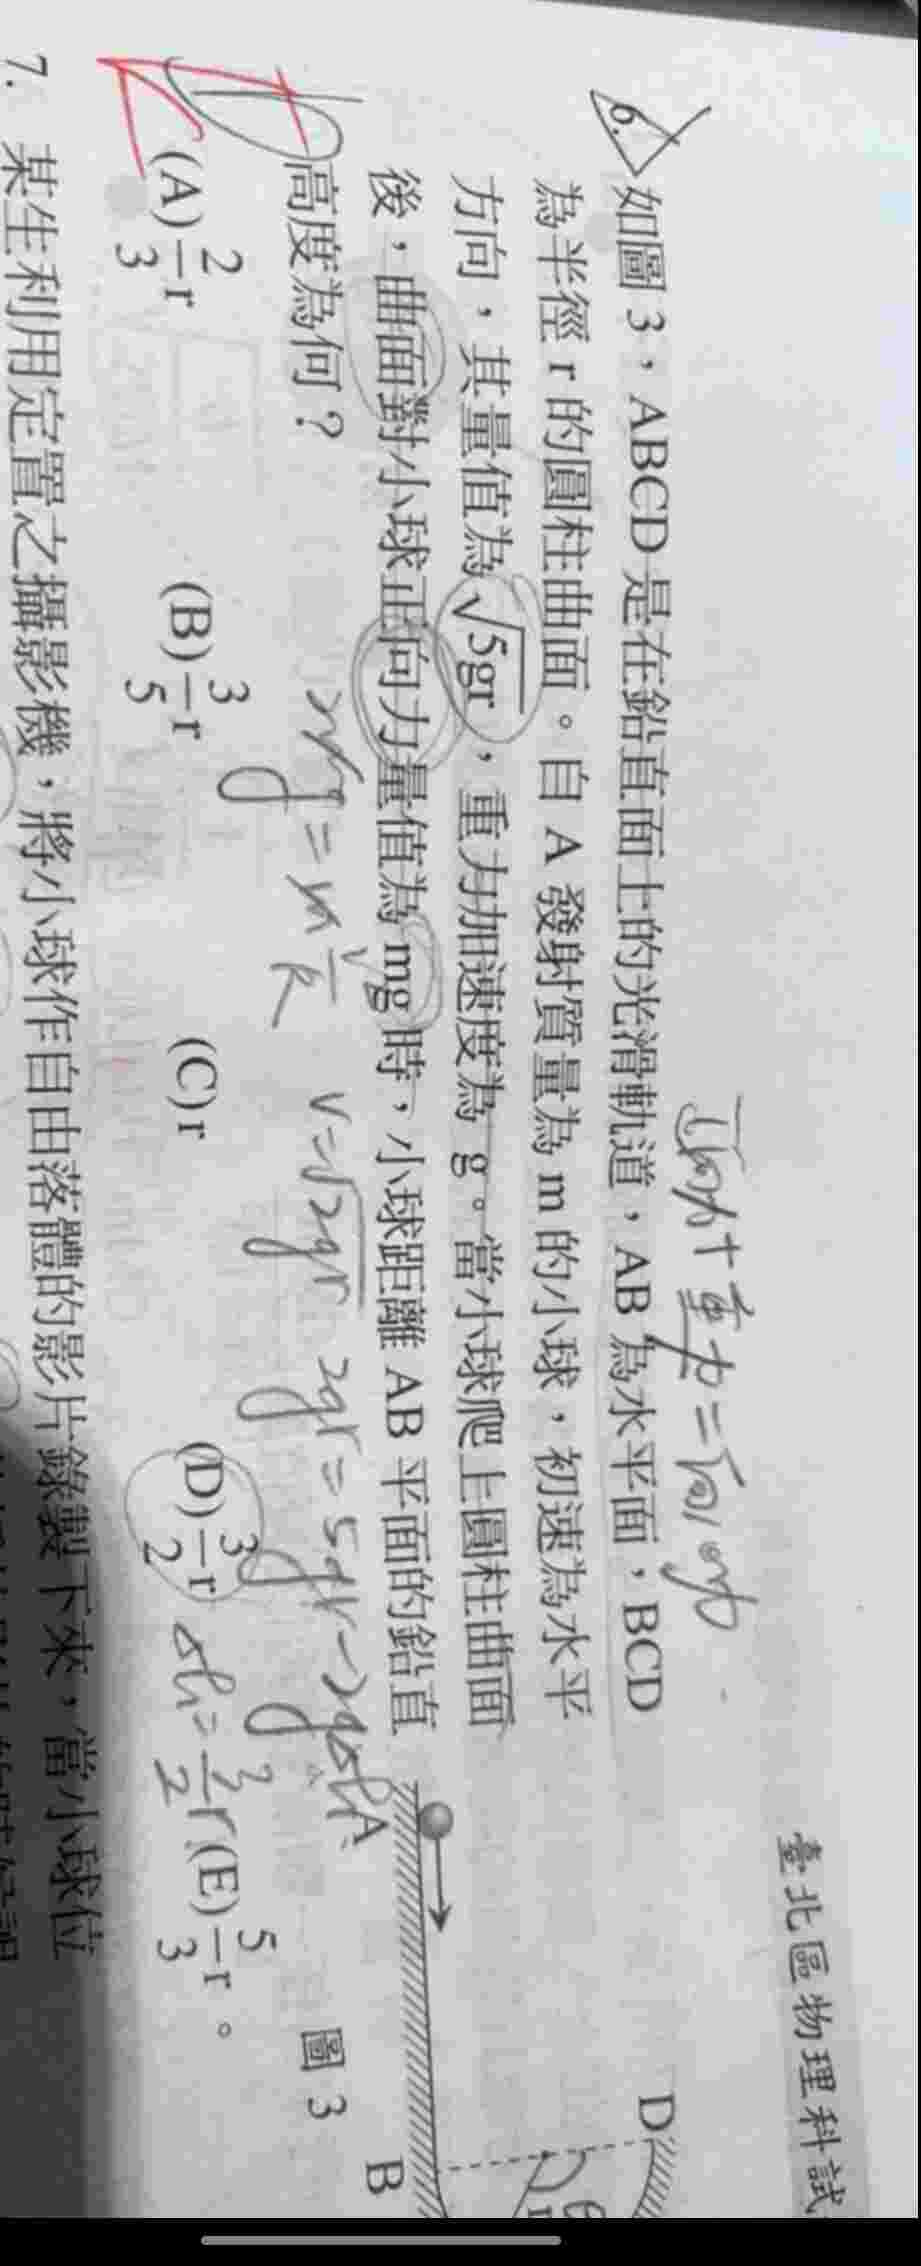 臺北區物理科試
正向力+重力=向心力
6. 如圖 3,ABCD 是在鉛直面上的光滑軌道,AB 為水平面,BCD
為半徑 r 的圓柱曲面。自 A 發射質量為 m 的小球,初速為水平
方向,其量值為 √5gr,重力加速度為 g。當小球爬上圓柱曲面
後,曲面對小球正向力量值為 mg 時,小球距離 AB 平面的鉛直
高度為何?
v=√2gr 2gr=5gr-2gΔh
(A) 2/3 r (B) 3/5 r (C) r (D) 3/2 r (E) 5/3 r。
Δh=3/2 r
D
θ
r
A
B
圖 3
7. 某生利用定置之攝影機,將小球作自由落體的影片錄製下來,當小球位